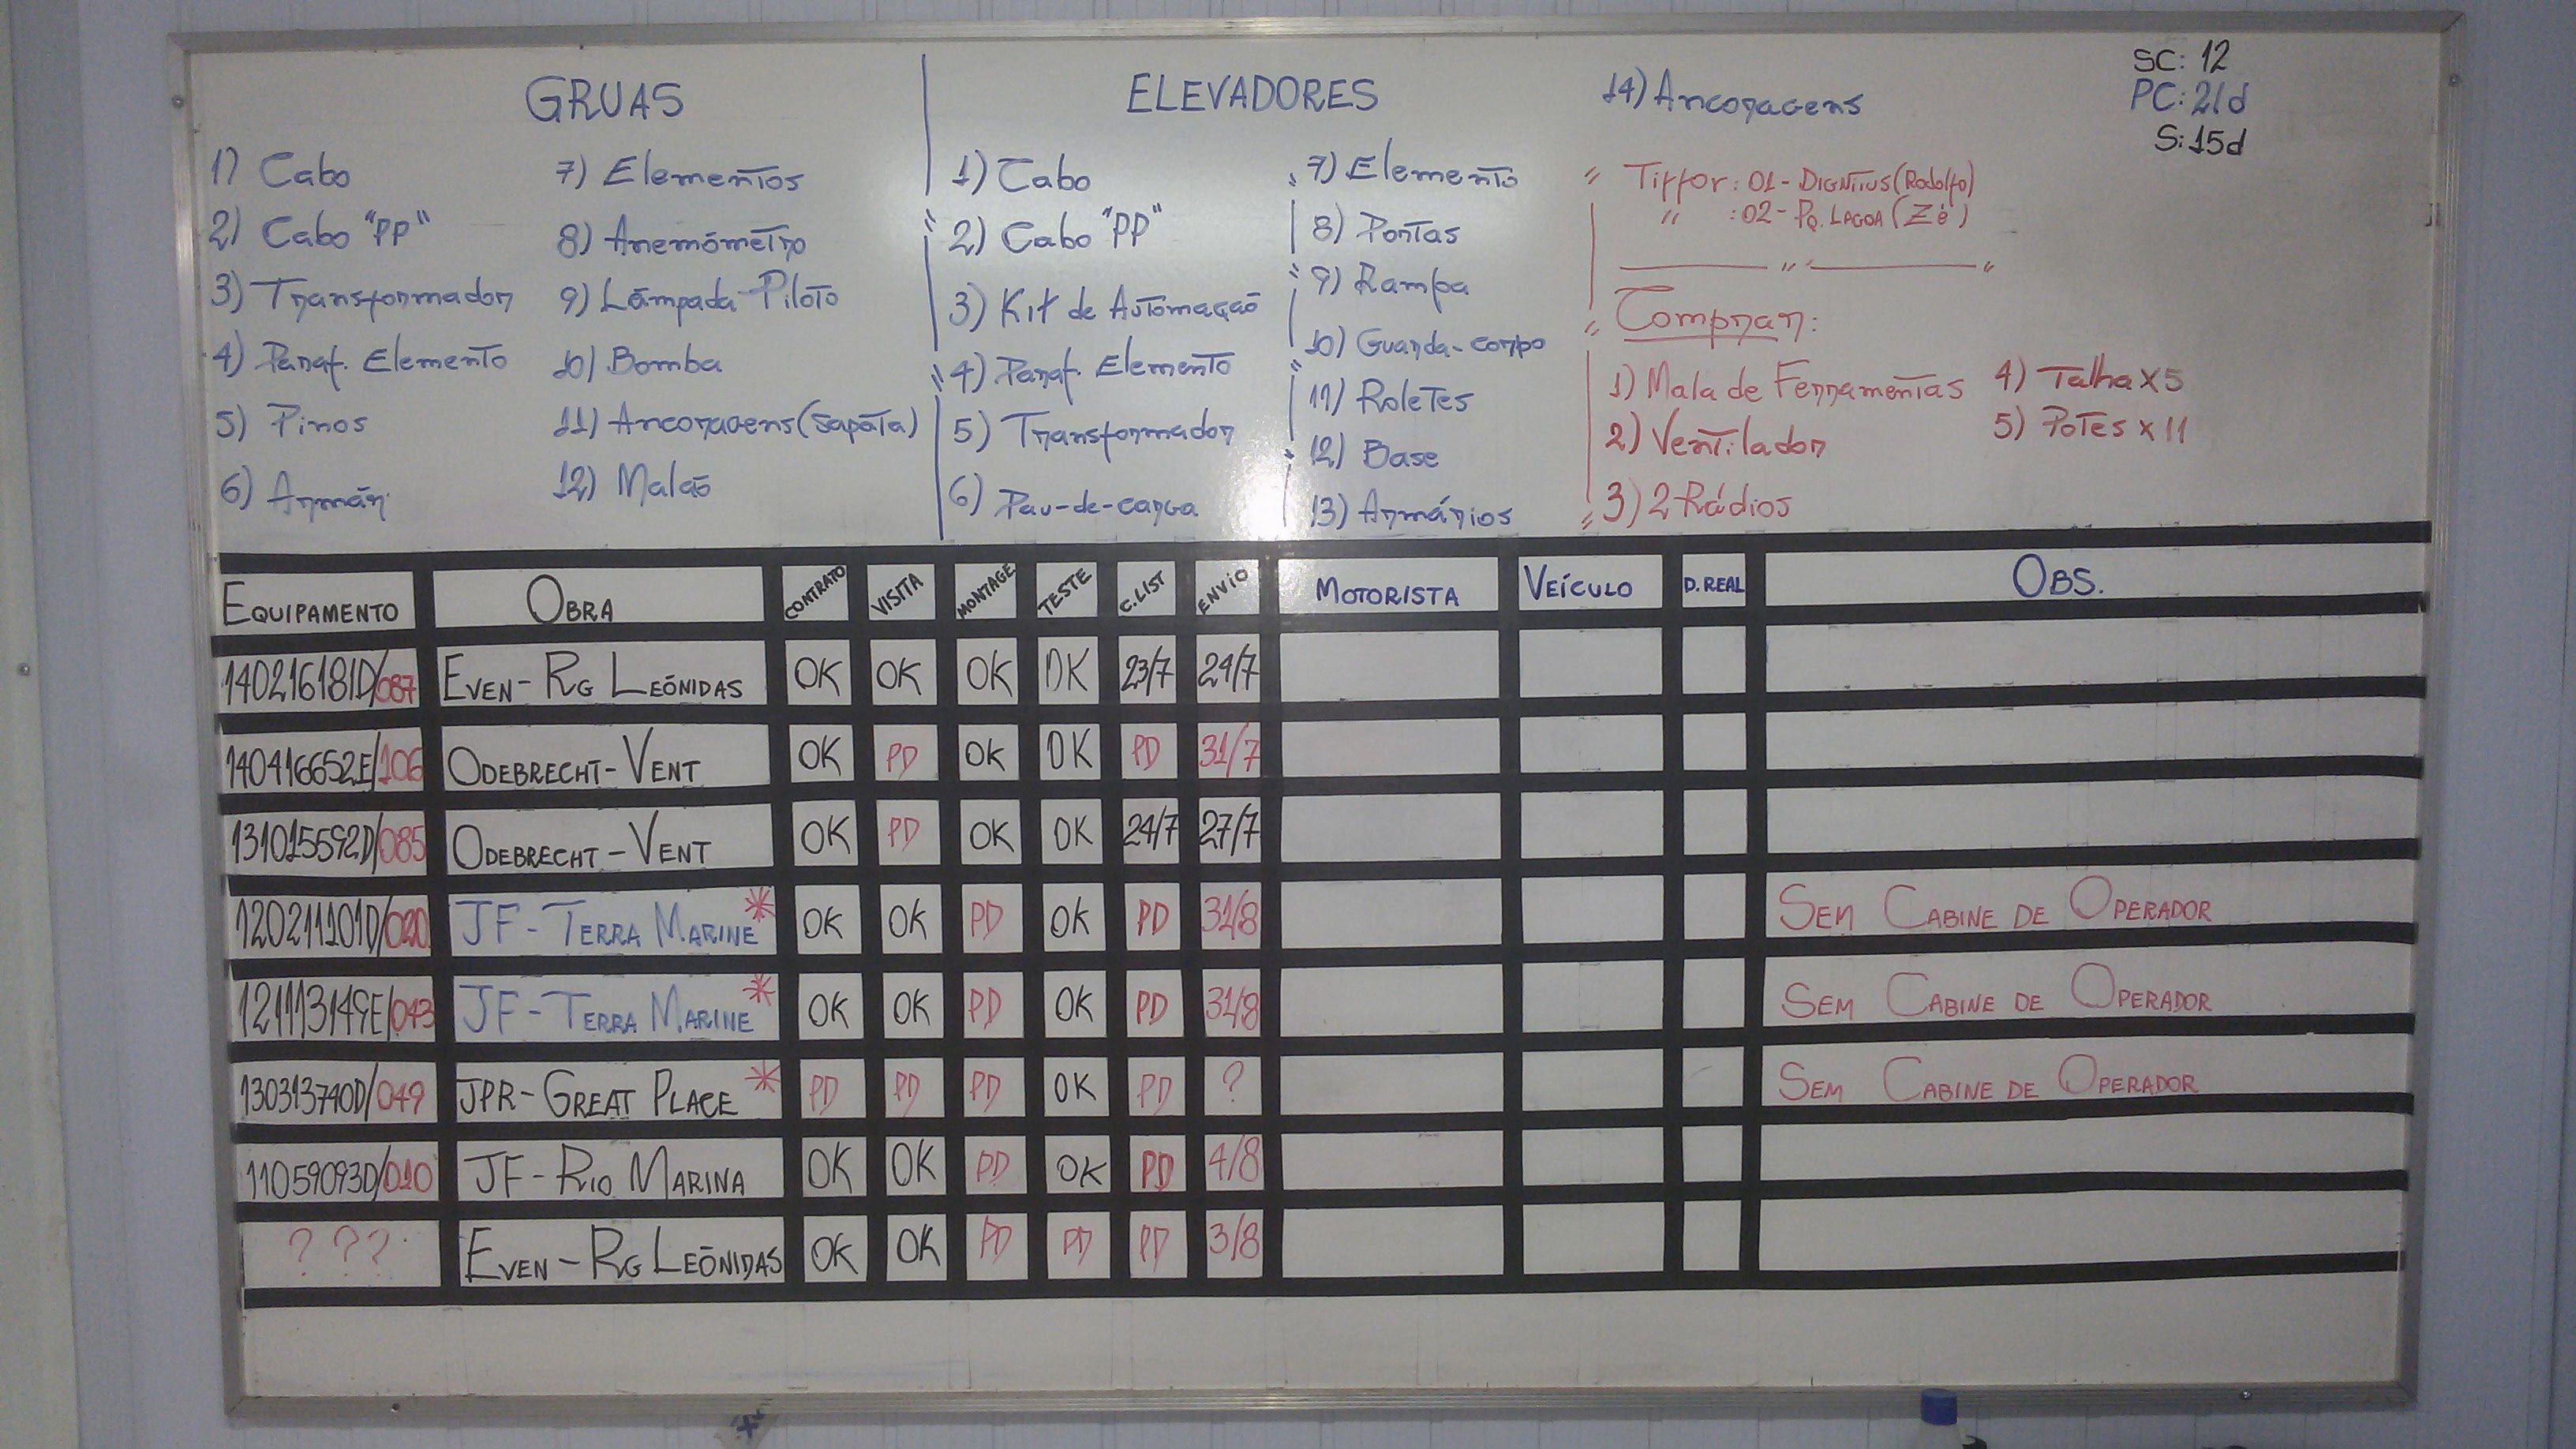 GRUAS
1) Cabo
2) Cabo "PP"
3) Transformador
4) Paraf. Elemento
5) Pinos
6) Armár.
7) Elementos
8) Anemômetro
9) Lâmpada Piloto
10) Bomba
11) Ancoragens (Sapata)
12) Malão
ELEVADORES
1) Cabo
2) Cabo "PP"
3) Kit de Automação
4) Paraf. Elemento
5) Transformador
6) Pau-de-carga
7) Elemento
8) Portas
9) Rampa
10) Guarda-corpo
11) Roletes
12) Base
13) Armários
14) Ancoragens
Tiffor: 01 - DIGNITUS (Rodolfo)
" : 02 - PQ. LAGOA (Zé)
Comprar:
1) Mala de Ferramentas
2) Ventilador
3) 2 Rádios
4) Talha x 5
5) Potes x 11
SC: 12
PC: 21d
S: 15d
EQUIPAMENTO OBRA CONTRATO VISITA MONTAGE TESTE C. LIST ENVIO MOTORISTA VEÍCULO D. REAL OBS.
140216181D/087 EVEN - RG LEÔNIDAS OK OK OK OK 23/7 24/7
140416652E/106 ODEBRECHT - VENT OK PD OK OK PD 31/7
131015592D/085 ODEBRECHT - VENT OK PD OK OK 24/7 27/7
120211101D/020 JF - TERRA MARINE * OK OK PD OK PD 31/8 SEM CABINE DE OPERADOR
121113149E/043 JF - TERRA MARINE * OK OK PD OK PD 31/8 SEM CABINE DE OPERADOR
130313740D/049 JPR - GREAT PLACE * PD PD PD OK PD ? SEM CABINE DE OPERADOR
11059093D/010 JF - RIO MARINA OK OK PD OK PD 4/8
? ? ? EVEN - RG LEÔNIDAS OK OK PD PD PD 3/8